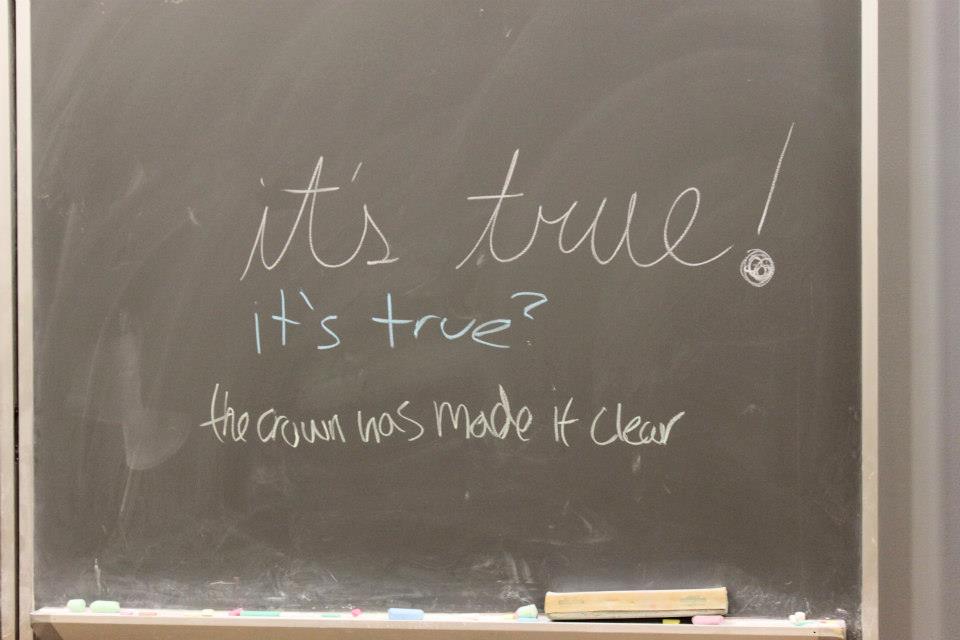 it's true!
it's true?
the crown has made it clear